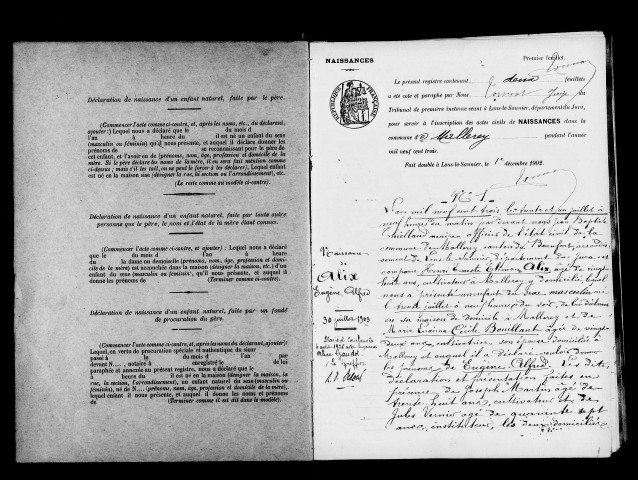 Déclaration de naissance d'un enfant naturel, faite par le père.
(Commencer l'acte comme ci-contre, et, après les noms, etc., du déclarant,
ajouter :) Lequel nous a déclaré que le du mois d
l'an à heure du il est né un enfant du sexe
(masculin ou féminin), qu'il nous présente, et auquel il déclare donner les
prénoms de se reconnaissant pour le père de
cet enfant, et l'avoir eu de (prénoms, nom, âge, profession et domicile de la
mère. Si le père déclare les noms de la mère, il en sera fait mention comme
ci-dessus ; mais s'il les tait, on ne peut le forcer à les déclarer). Lequel enfant
est né en la maison sise (désigner la rue, la section ou l'arrondissement), etc.
(Le reste comme au modèle ci-contre).
Déclaration de naissance d'un enfant naturel, faite par toute autre
personne que le père, le nom et l'état de la mère étant connus.
(Commencer l'acte comme ci-contre, et ajouter) : Lequel nous a déclaré
que le du mois d l'an à heure
du la dame ou demoiselle (prénoms, nom, âge, profession et domi-
cile de la mère) est accouchée dans la maison (désigner la maison, etc.) d'un
enfant du sexe (masculin ou féminin), qu'il nous présente, et auquel il a
donné les prénoms de (Terminer comme ci-contre).
Déclaration de naissance d'un enfant naturel, faite par un fondé
de procuration du père.
(Commencer l'acte comme ci-contre, et, après les noms du déclarant, ajouter)
Lequel, en vertu de procuration spéciale et authentique du sieur
passé à le du mois d l'an par
devant N...., notaire à enregistrée le
paraphée et annexée au présent registre, nous a déclaré que le
à heure du il est né en la maison (désigner la maison, la
rue, la section, l'arrondissement), un enfant du sexe (masculin ou fé-
minin), né de M (prénoms, nom, âge, profession et domicile de la mère),
lequel enfant il nous a présenté, et auquel il donne les prénoms et nom de
(Terminer comme il est dit dans le modèle).
NAISSANCES
Premier feuillet.
Le présent registre contenant deux feuillets
a été coté et paraphé par Nous Juge du
Tribunal de première instance séant à Lons-le-Saunier, département du Jura,
pour servir à l'inscription des actes civils de NAISSANCES dans la
commune de Mallerey pendant l'année
mil neuf cent trois.
Fait double à Lons-le-Saunier, le 1er décembre 1902.
RÉPUBLIQUE FRANÇAISE
N° 1
Naissance
de
Alix
Eugène Alfred
30 juillet 1903
L'an mil neuf cent trois le trente et un juillet à
neuf heures du matin par devant nous Jean Baptiste
maire officier de l'état civil de la
commune de Mallerey canton de Beaufort, arrondis-
sement de Lons le Saunier, département du Jura, est
comparu Henri Emile Alix, âgé de vingt
huit ans, cultivateur à Mallerey y domicilié, lequel
nous a présenté un enfant du sexe masculin né
le trente juillet à neuf heures du soir, de lui déclarant
en sa maison de domicile à Mallerey et de
Marie Cécile Bouillant âgée de vingt-
deux ans, cultivatrice son épouse domiciliée à
Mallerey et auquel il a déclaré vouloir donner
les prénoms de Eugène Alfred. Les dites
déclaration et présentation faites en
présence de Joseph Martin âgé de
trente huit ans, cultivateur et de
Jules Vernier âgé de quarante sept
ans, instituteur, les deux domiciliés